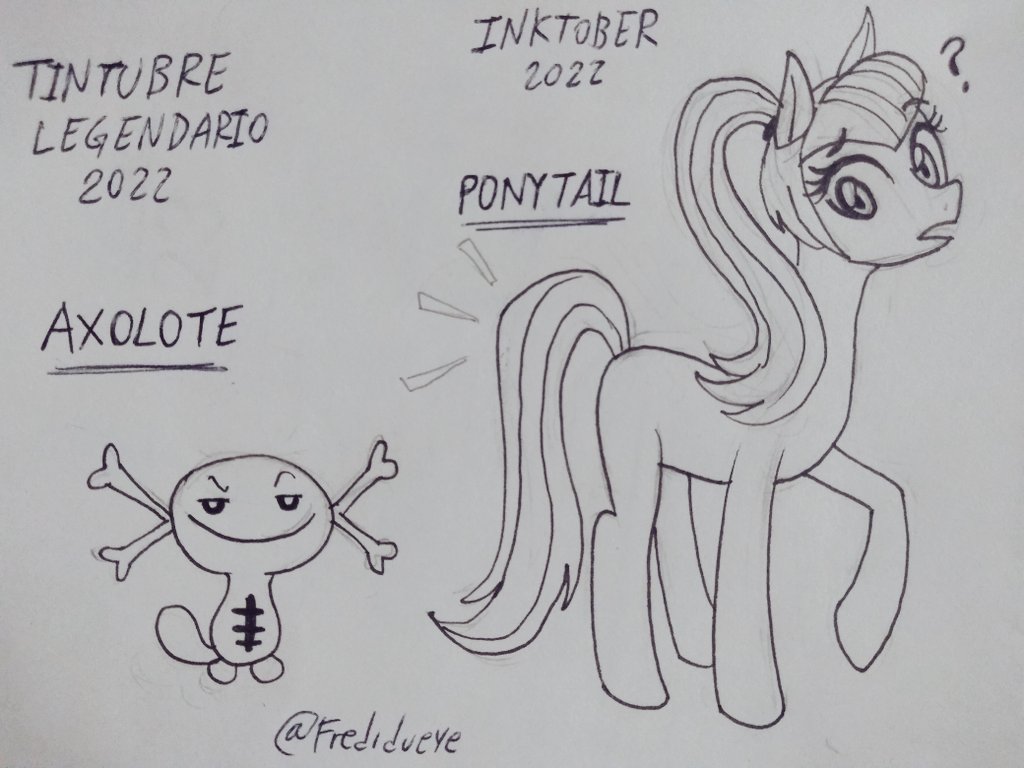 TINTUBRE
LEGENDARIO
2022
INKTOBER
2022
PONYTAIL
?
AXOLOTE
@Fredidueye